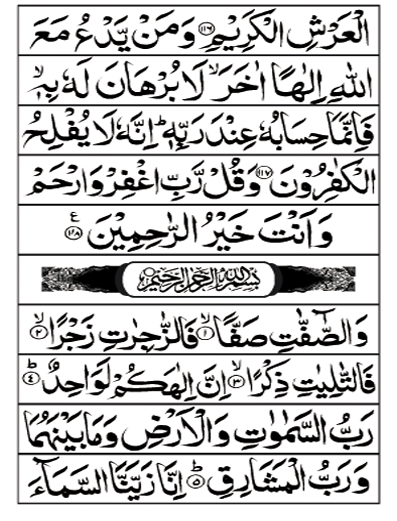 الْعَرْشِ الْكَرِيْمِ ﴿۱۱۶﴾ وَمَنْ يَّدْعُ مَعَ
اللّٰهِ اِلٰهًا اٰخَرَ ۙ لَا بُرْهَانَ لَهٗ بِهٖ ۙ
فَاِنَّمَا حِسَابُهٗ عِنْدَ رَبِّهٖ ؕ اِنَّهٗ لَا يُفْلِحُ
الْكٰفِرُوْنَ ﴿۱۱۷﴾ وَقُلْ رَّبِّ اغْفِرْ وَارْحَمْ
وَاَنْتَ خَيْرُ الرّٰحِمِيْنَ ﴿۱۱۸﴾ ع
بِسْمِ اللّٰهِ الرَّحْمٰنِ الرَّحِيْمِ
وَالصّٰٓفّٰتِ صَفًّا ۙ﴿۱﴾ فَالزّٰجِرٰتِ زَجْرًا ۙ﴿۲﴾
فَالتّٰلِيٰتِ ذِكْرًا ۙ﴿۳﴾ اِنَّ اِلٰهَكُمْ لَوَاحِدٌ ؕ﴿۴﴾
رَبُّ السَّمٰوٰتِ وَالْاَرْضِ وَمَا بَيْنَهُمَا
وَرَبُّ الْمَشَارِقِ ؕ﴿۵﴾ اِنَّا زَيَّنَّا السَّمَآءَ